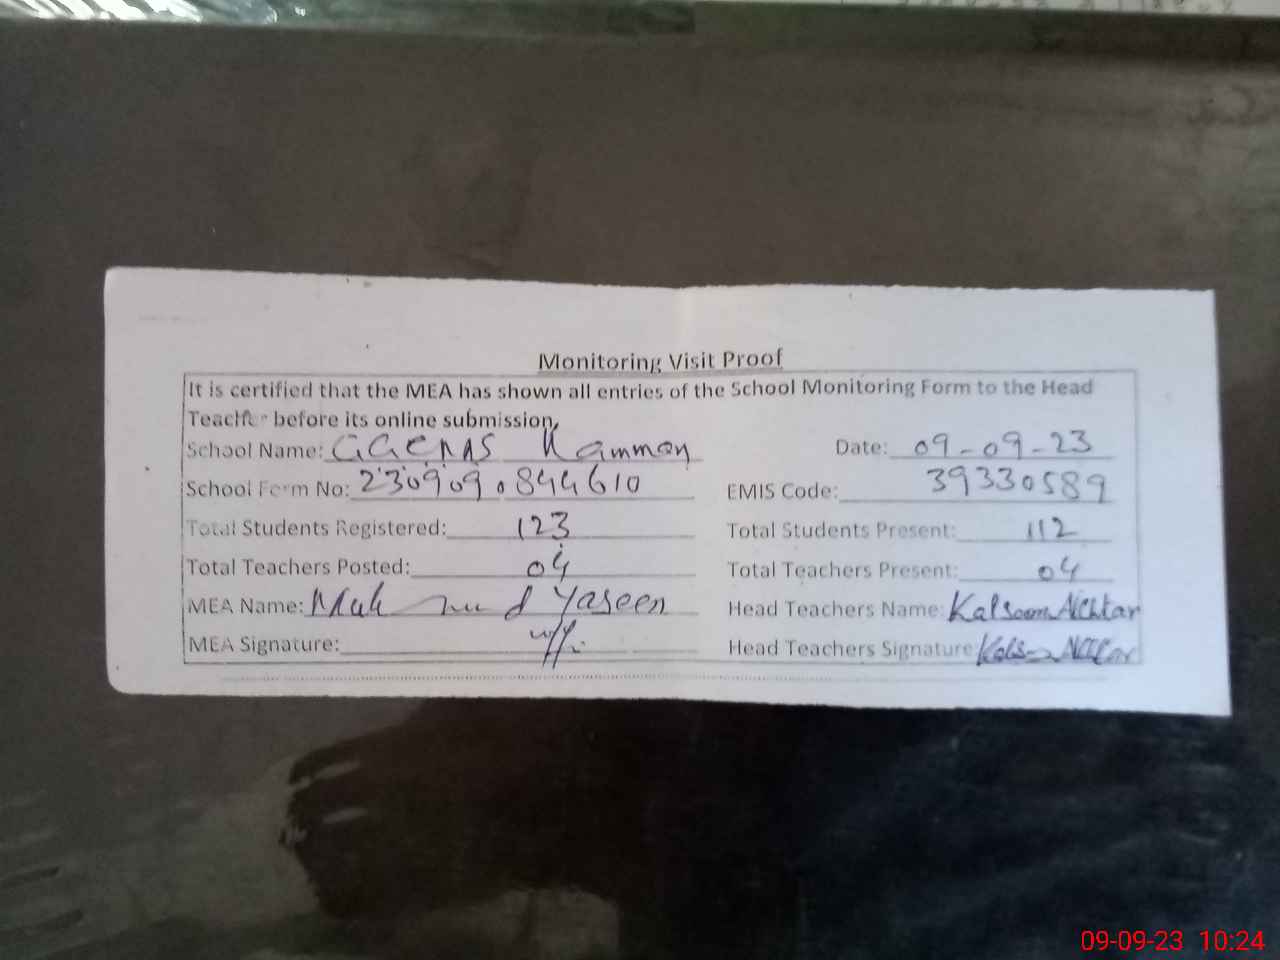 Monitoring Visit Proof
It is certified that the MEA has shown all entries of the School Monitoring Form to the Head
Teacher before its online submission,
School Name: Date: 09-09-23
School Form No: 230909.844610 EMIS Code: 39330589
Total Students Registered: 123 Total Students Present: 112
Total Teachers Posted: 04 Total Teachers Present: 04
MEA Name: Yaseen Head Teachers Name: Kalsoom Akhtar
MEA Signature: Head Teachers Signature:
09-09-23 10:24